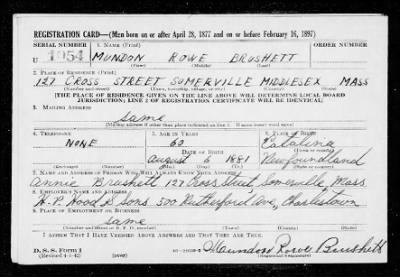 REGISTRATION CARD—(Men born on or after April 28, 1877 and on or before February 16, 1897)
SERIAL NUMBER 1. NAME (Print) ORDER NUMBER
U 1954 MUNDON ROWE BRUSHETT
(First) (Middle) (Last)
2. PLACE OF RESIDENCE (Print)
127 CROSS STREET SOMERVILLE MIDDLESEX MASS
(Number and street) (Town, township, village, or city) (County) (State)
[THE PLACE OF RESIDENCE GIVEN ON THE LINE ABOVE WILL DETERMINE LOCAL BOARD
JURISDICTION; LINE 2 OF REGISTRATION CERTIFICATE WILL BE IDENTICAL]
3. MAILING ADDRESS
Same
[Mailing address if other than place indicated on line 2. If same insert word same]
4. TELEPHONE 5. AGE IN YEARS 6. PLACE OF BIRTH
NONE 60 Catalina
DATE OF BIRTH (Town or county)
August 6 1881 Newfoundland
(Exchange) (Number) (Mo.) (Day) (Yr.) (State or country)
7. NAME AND ADDRESS OF PERSON WHO WILL ALWAYS KNOW YOUR ADDRESS
Annie Brushett 127 Cross Street, Somerville, Mass
8. EMPLOYER'S NAME AND ADDRESS
W. P. Wood & Sons 500 Rutherford Ave, Charlestown
9. PLACE OF EMPLOYMENT OR BUSINESS
same
(Number and street or R. F. D. number) (Town) (County) (State)
I AFFIRM THAT I HAVE VERIFIED ABOVE ANSWERS AND THAT THEY ARE TRUE.
D. S. S. Form 1
(Revised 4-1-42) (over) Mundon Rowe Brushett